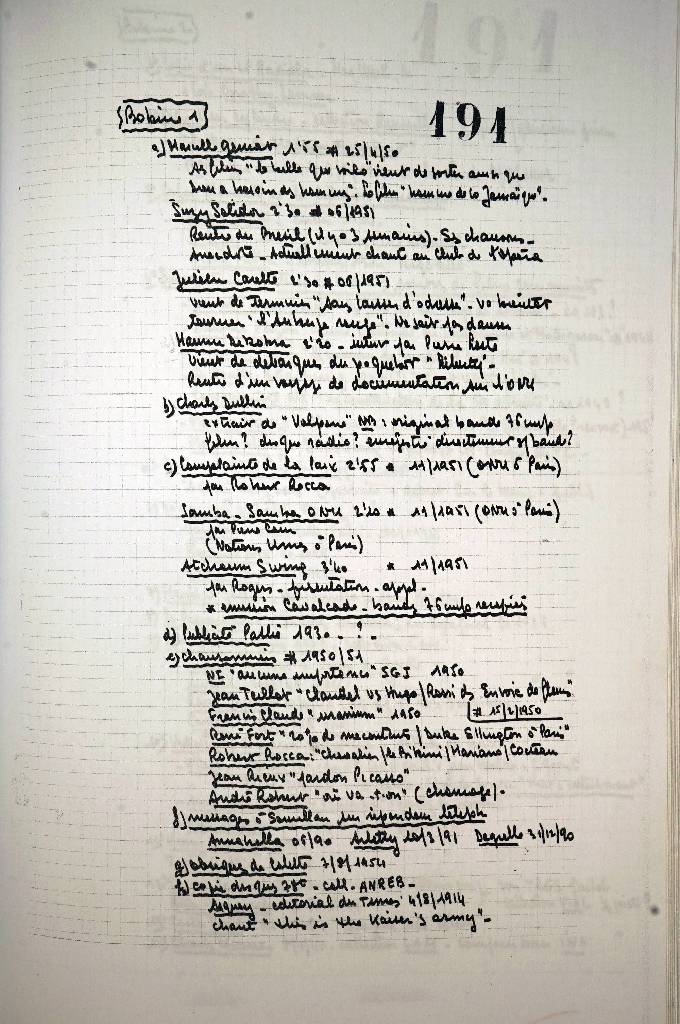 Bobine 1
191
a) Marcelle Géniat 1'55 # 25/4/50
ses films "la belle que voilà" vient de sortir ainsi que
Dieu a besoin des hommes". Le film "homme de la Jamaïque".
Suzy Solidor 2'30 # 06/1951
Rentre du Brésil (il y a 3 semaines). Ses chansons_
Anecdote_ Actuellement chante au Club de l'Opéra
Julien Carette 2'30 # 06/1951
vient de terminer "sans laisser d'adresse". va bientôt
tourner "l'Auberge rouge". Ne sait pas danser
2'20 _ interv par Pierre
Vient de débarquer du paquebot "Liberty"_
Rentre d'un voyage de documentation sur l'ONU
b) Charles Dullin
extrait de "Volpone" NB: original bande 76 cm/s
film? disque radio? enregistré directement s/bande?
c) Complainte de la Paix 2'55 * 11/1951 (ONU à Paris)
par Robert Rocca
Samba_Samba ONU 2'10 * 11/1951 (ONU à Paris)
par
(Nations Unies à Paris)
Swing 3'40 * 11/1951
par Rogers_ présentation_appl._
* émission Cavalcade_bandes 76 cm/s
d) Publicité Pathé 1930_?_
e) chansonniers # 1950/51
NI "aucune importance" SGJ 1950
Jean "Claudel vs Hugo/
Francis Claude "uranium" 1950 # 15/2/1950
René Fort "20% de mécontents/Duke Ellington à Paris"
Robert Rocca: "Chevalier/le Bikini/Mariano/Cocteau
Jean Rieux "pardon Picasso"
André Robert "où va-t-on" (chomage).
f) messages à sur répondeur téléph
Annabella 05/90 Arletty 10/3/91 31/12/90
g) obsèques de Colette 7/8/1954
h) copie disques 78t_coll. ANREB_
_éditorial du Times 4/8/1914
chant "this is the Kaiser's army"_